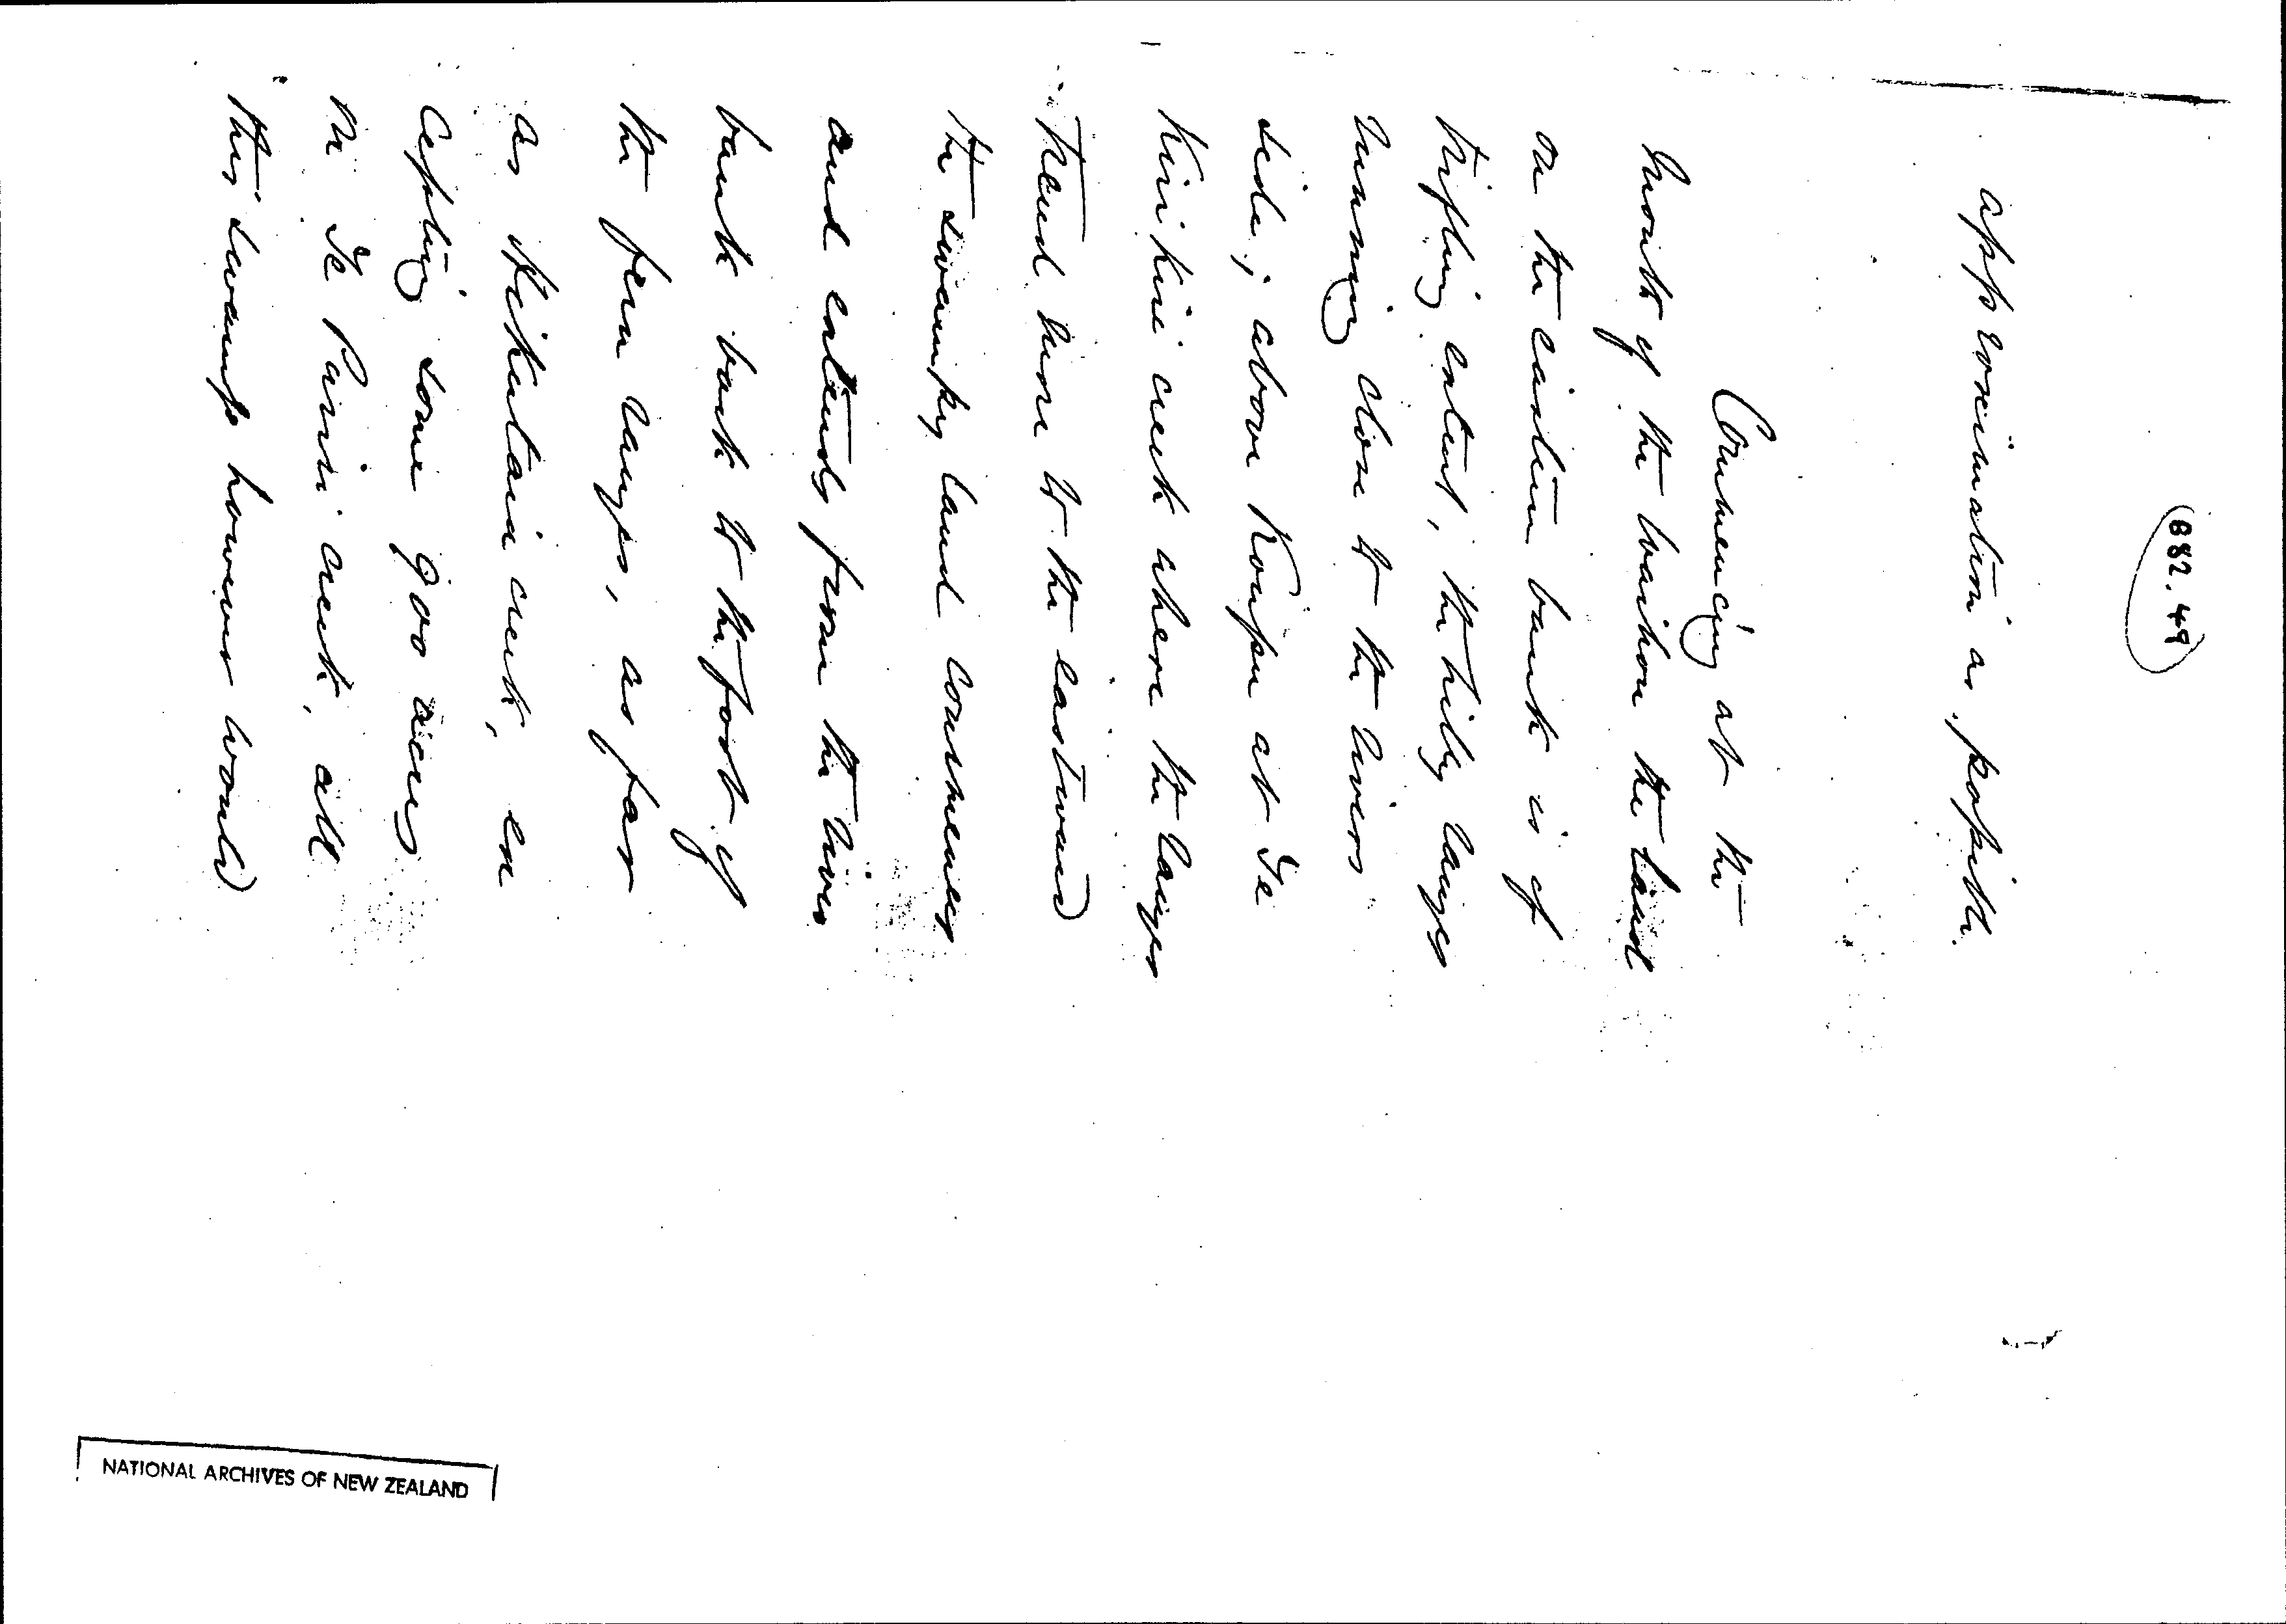 882.49
approximation as possible.
Commencing at the
mouth of the Waihou the land
on the eastern bank is of
trifling extent, the hilly ranges
running close to the rivers
side; above Koupu at Te
Kirikiri creek where the ranges
trend more to the eastward
the swampy land commences
and extends from the river
bank back to the foot of
the fern ranges, as far
as Hikutaia creek, ex
cepting some 900 acres
in Te Puriri creek, all
this swamp however would
NATIONAL ARCHIVES OF NEW ZEALAND